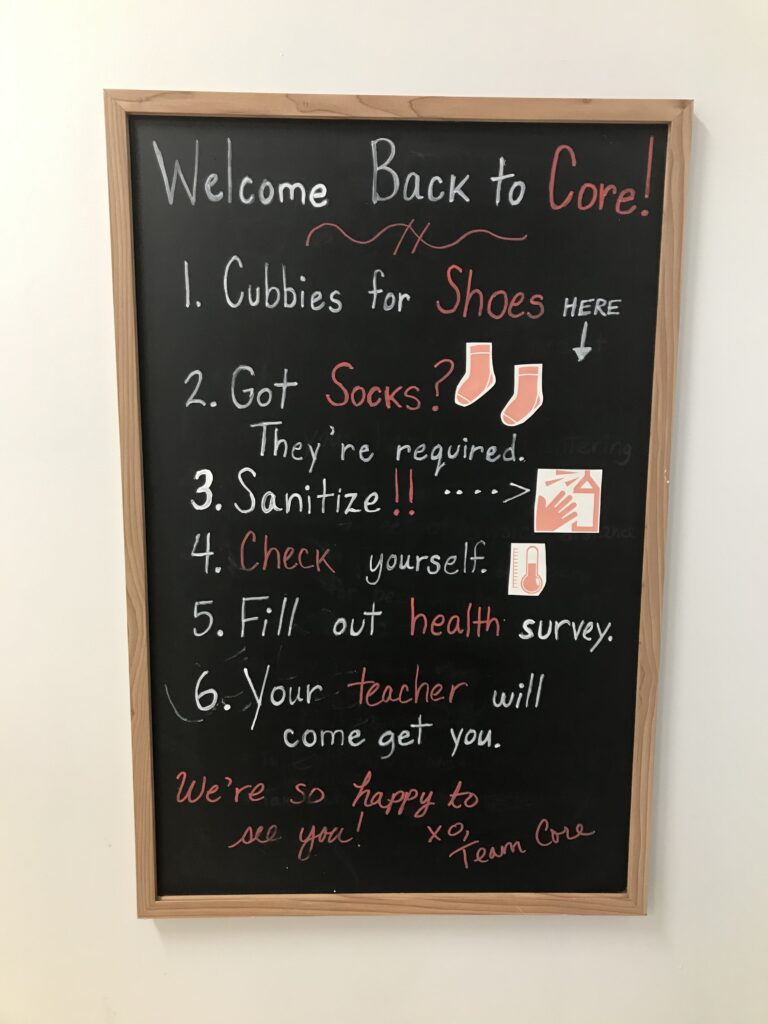 Welcome Back to Core!
1. Cubbies for Shoes HERE
2. Got Socks?
They're required.
3. Sanitize!!
4. Check yourself.
5. Fill out health survey.
6. Your teacher will
come get you.
We're so happy to
see you!
xo,
Team Core